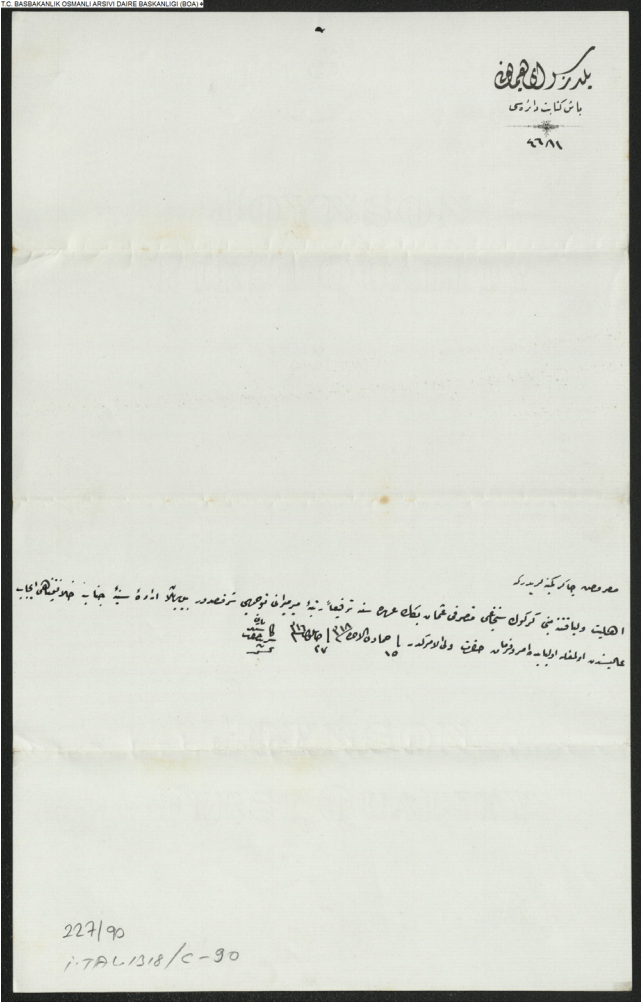 T.C. BASBAKANLIK OSMANLI ARSIVI DAIRE BASKANLIGI (BOA)
يلديز سراى همايونى
باش كتابت دائره سى
٤٦٨١
معروض چاكر كمينه لريدركه
اهليت و لياقتنه مبنى كركوك سنجاغى متصرفى عثمان بكك عهده سنه ترفيعاً رتبۀ ميرميرانى توجيهى شرفصدور بيوريلان ارادۀ سنيۀ جناب خلافتپناهى ايجاب
عاليسندن اولمغله اولبابده امر و فرمان حضرت ولى الامركدر ١٥ جماذى الاخر ٣١٨ ٢٧ ٣١٦
227/90
İ.TAL 1318/C-90